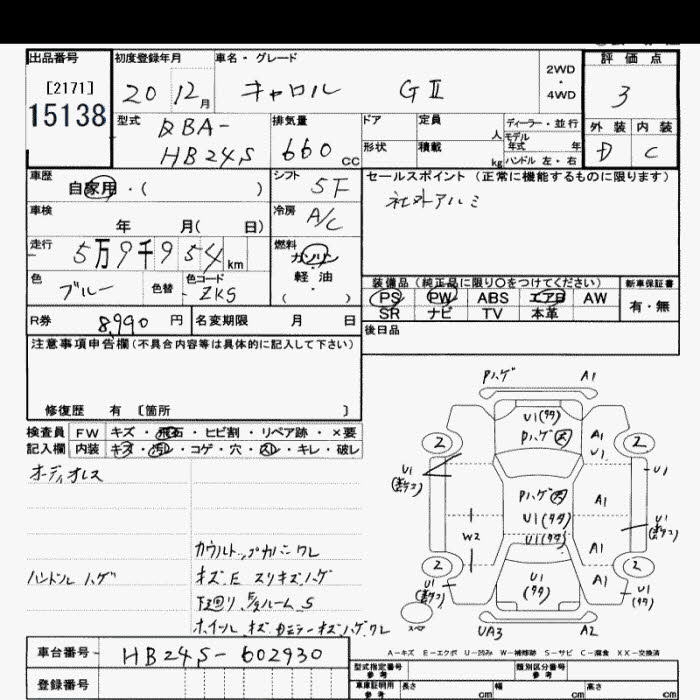 出品番号
[2171]
15138
初度登録年月
20 12月
車名・グレード
キャロル GⅡ
2WD
・
4WD
評価点
3
外装 内装
D C
型式
DBA-
HB24S
排気量
660 cc
ドア
定員
人
形状
積載
kg
ディーラー・並行
モデル
年式 年
ハンドル 左・右
車歴
自家用・( )
シフト
5F
セールスポイント(正常に機能するものに限ります)
社外アルミ
車検
年 月( 日)
冷房
A/C
走行
5万9千954km
燃料
ガソリン
・
軽油
( )
色
ブルー
色替
色コード
ZKG
装備品(純正品に限り○をつけてください)
PS PW ABS エアB AW
SR ナビ TV 本革
新車保証書
有・無
R券
8,990円
名変期限 月 日
後日品
注意事項申告欄(不具合内容等は具体的に記入して下さい)
修復歴 有 〔箇所 〕
検査員
記入欄
FW キズ・飛石・ヒビ割・リペア跡・×要
内装 キズ・汚レ・コゲ・穴・スレ・キレ・破レ
オーディオレス
カウルトップカバーワレ
ハンドルハゲ
キズ、E スリキズ、ハゲ
下廻り、E/gルーム S
ホイール キズ
PハゲA1
U1(タタ)
Pハゲ
A1
U1
2
2
U1
U1
Pハゲ
A1
U1(タタ)
U1(タタ)
W2
U1
A1
2
2
U1
(タタ)
A1
U1
U1
(タタ)
スペア
UA3
A2
A-キズ E-エクボ U-凹み W-補修跡 S-サビ C-腐食 XX-交換済
車台番号
HB24S-602930
登録番号
型式指定番号
参考
類別区分番号
参考
車庫証明用
参考
長さ cm
幅 cm
高さ cm